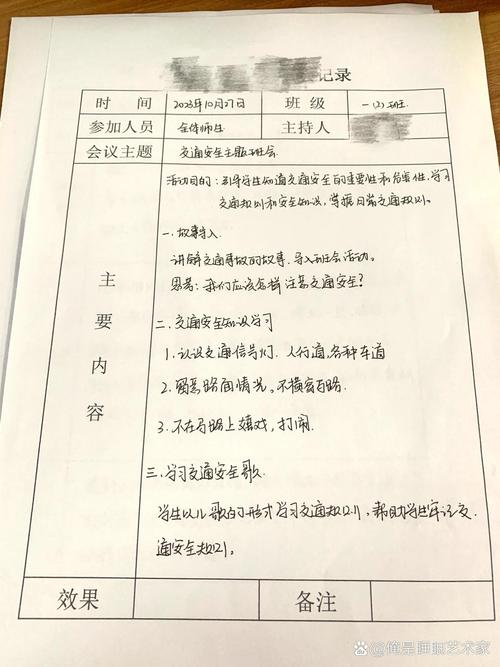 记录
时间 2023年10月27日 班级 一(2)班.
参加人员 全体师生 主持人
会议主题 交通安全主题班会.
主要内容
活动目的: 引导学生知道交通安全的重要性和危害性,学习
交通规则和安全知识,掌握日常交通规则。
一.故事导入
讲解交通事故的故事.导入班会活动。
思考:我们应该怎样注意交通安全?
二.交通安全知识学习
1.认识交通信号灯.人行道,各种车道
2.熟悉路面情况,不横穿马路.
3.不在马路上嬉戏,打闹.
三.学习交通安全歌
学生以儿歌的形式学习交通规则,帮助学生牢记交
通安全规则。
效果 备注
@俺是睡眠艺术家